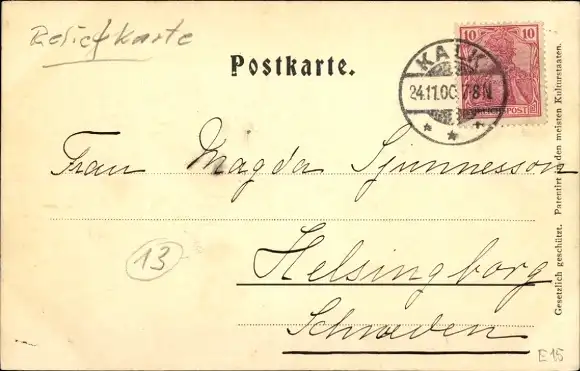 Reliefkarte
Postkarte.
10 10
KALK
24.11.00. 7-8N
REICHSPOST
Frau Magda Sjunnesson
13
Helsingborg
Schweden
Gesetzlich geschützt. Patentirt in den meisten Kulturstaaten.
E15